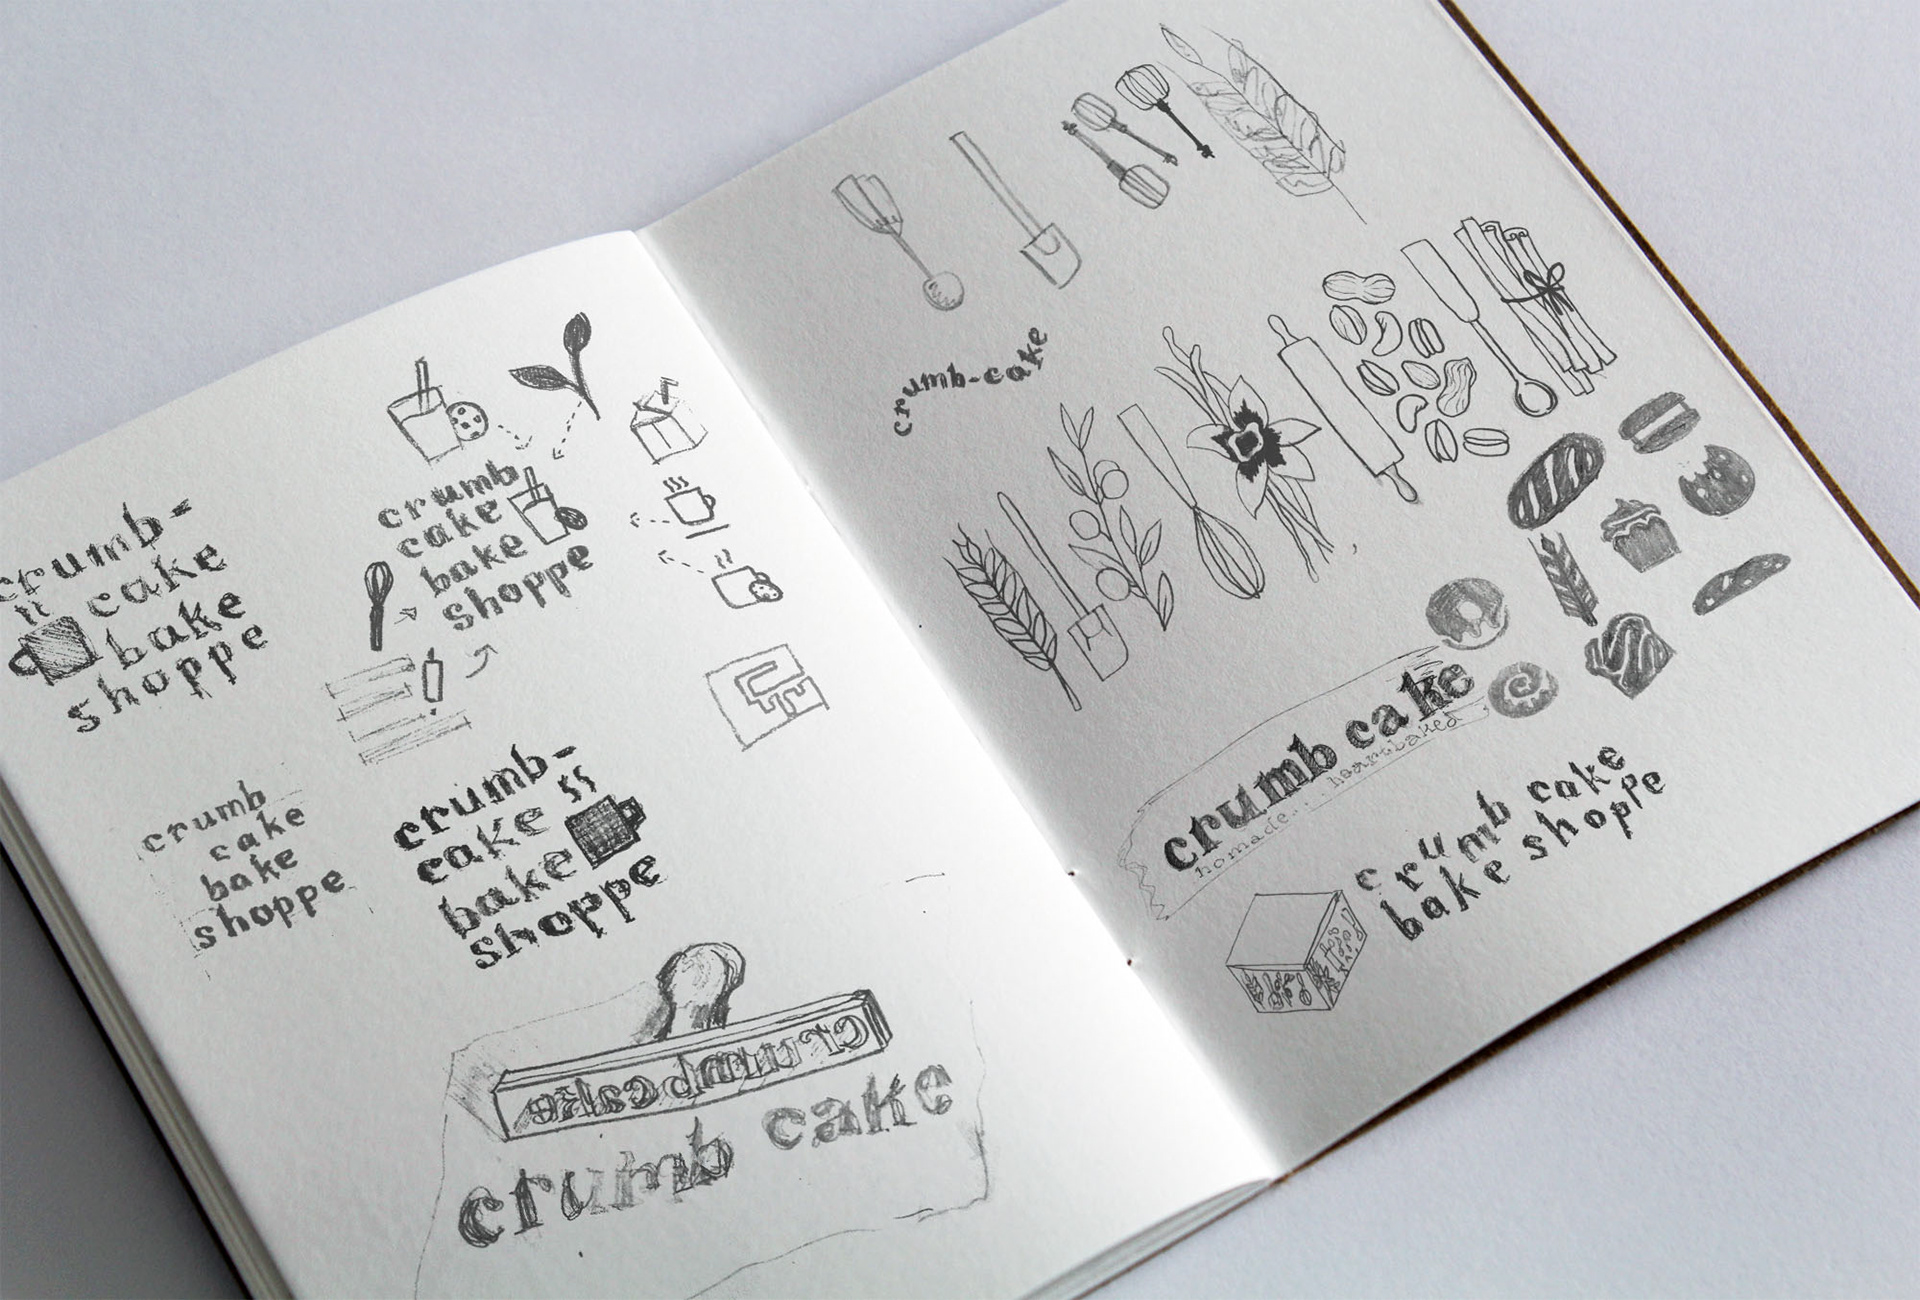 crumb-
cake
bake
shoppe
crumb
cake
bake
shoppe
crumb
cake
bake
shoppe
crumb-
cake
bake
shoppe
crumb cake
crumb cake
crumb-cake
crumb cake
homade... heartbaked
crumb cake
bake shoppe